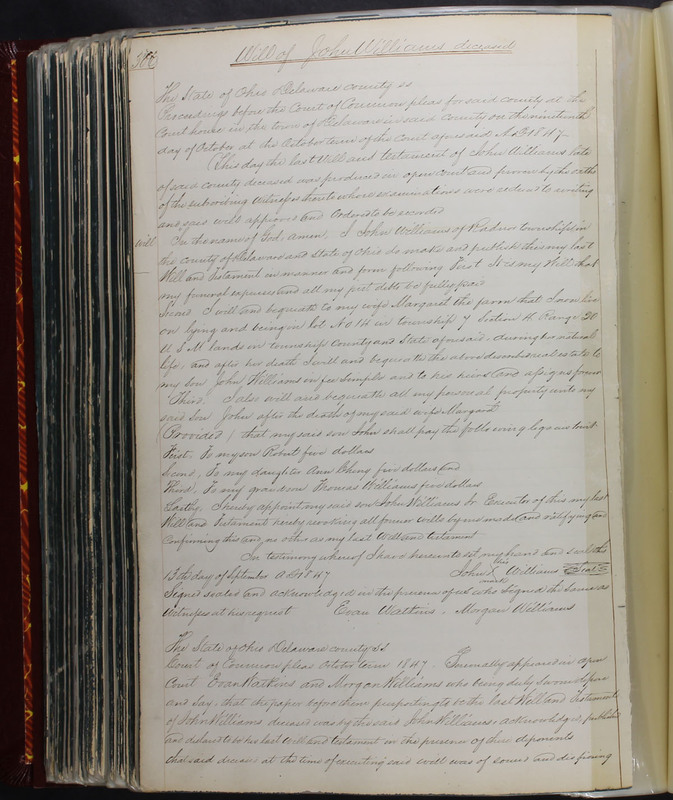 366
Will of John Williams deceased
The State of Ohio Delaware county ss
Proceedings before the Court of Common pleas for said county at the
Court house in the town of Delaware in said County on the nineteenth
day of October at the October term of the Court aforesaid A D 1847
This day the last Will and testament of John Williams late
of said county deceased was produced in open court and proven by the oaths
of the subscribing witnesses thereto whose examinations were reduced to writing
and said will approved and Ordered to be recorded
Will
In the name of God, amen, I John Williams of Radnor township in
the county of Delaware and State of Ohio do make and publish this my last
Will and Testament in manner and form following First It is my Will that
my funeral expenses and all my just debts be fully paid
Second I will and bequeath to my wife Margaret the farm that I now live
on lying and being in lot No 14 in township 7 Section 4 Range 20
U S M lands in township County and State aforesaid, during her natural
life, and after her death I will and bequeath the above described real estate to
my son John Williams in fee simple and to his heirs and assigns forever
Third, I also will and bequeath all my personal property unto my
said Son John after the death of my said wife Margaret
(Provided) that my said son John shall pay the following legacies to wit
First, To my son Robert five dollars
Second, To my daughter Ann five dollars and
Third, To my grandson Thomas Williams five dollars
Lastly, I hereby appoint my said son John Williams Jr Executor of this my last
Will and Testament hereby revoking all former wills by me made and ratifying and
confirming this and no other as my last Will and testament
In testimony whereof I have hereunto set my hand and seal this
13th day of September A D 1847 John his X mark Williams Seal
Signed sealed and acknowledged in the presence of us who signed the same as
Witnesses at his request Evan Watkins, Morgan Williams
The State of Ohio Delaware county SS
Court of Common pleas October term 1847 Personally appeared in open
Court Evan Watkins and Morgan Williams who being duly sworn depose
and say, that the paper before them purporting to be the last Will and Testament
of John Williams deceased was by the said John Williams acknowledged, published
and declared to be his last will and testament in the presence of these deponents
that said deceased at the time of executing said will was of sound and disposing